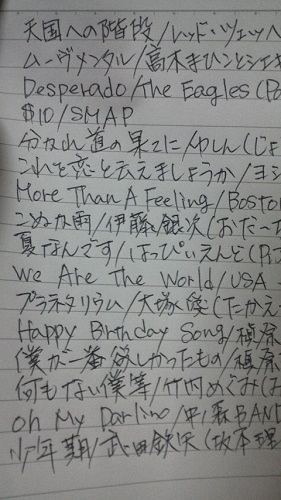 天国への階段/レッド・ツェッペ
ムーヴメンタル/高木まひことシェキ
Desperado/The Eagles (Po
$10/SMAP
分かれ道の果てに/ゆしん(じょ
これを恋と云えましょうか/ヨシ
More Than A Feeling/Bosto
こぬか雨/伊藤銀次(おだ〜た
夏なんです/はっぴいえんど(
We Are The World/USA
プラネタリウム/大塚愛(たかえ
Happy Birthday Song/槇原
僕が一番欲しかったもの/槇原
何もない僕等/竹内めぐみ(
Oh My Darling/中ノ森BAND
少年期/武田鉄矢(坂本